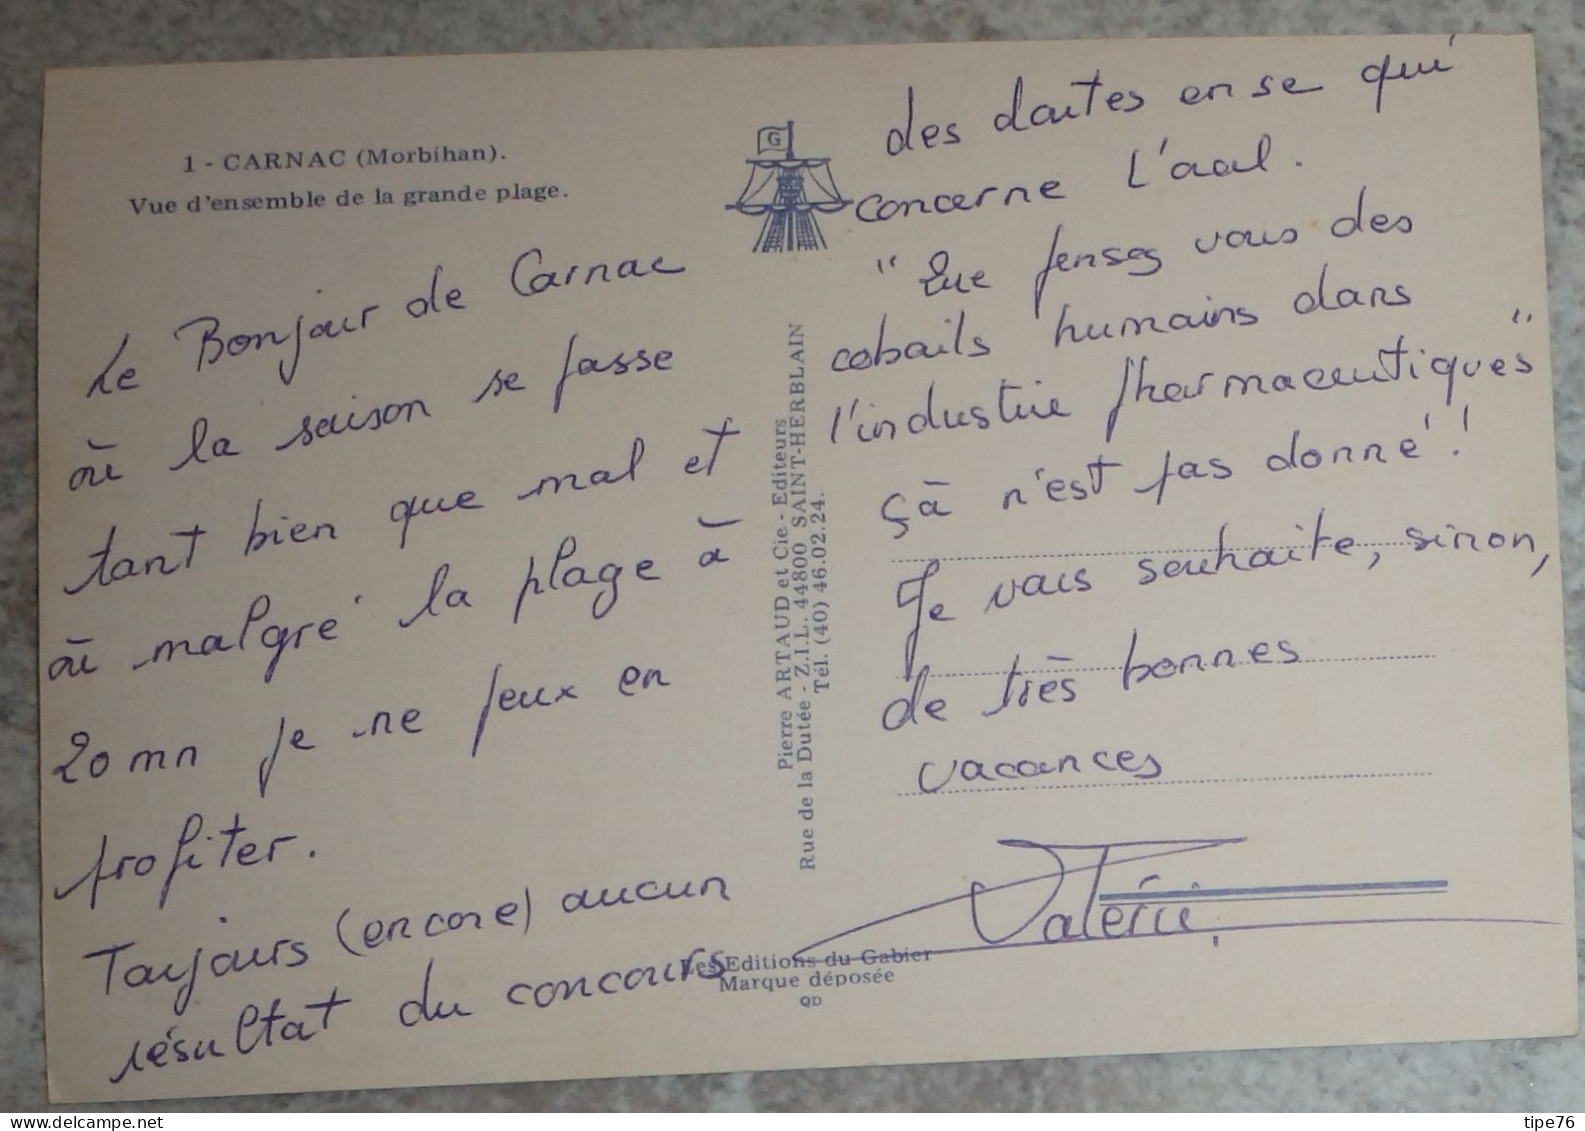 1 - CARNAC (Morbihan).
Vue d'ensemble de la grande plage.
Le Bonjour de Carnac
où la saison se passe
tant bien que mal et
où malgré la plage à
20 mn je ne peux en
profiter.
Toujours (encore) aucun
résultat du concours
G
Pierre ARTAUD et Cie - Editeurs
Rue de la Dutée - Z.I.L. 44800 SAINT-HERBLAIN
Tél. (40) 46.02.24.
Les Editions du Gabier
Marque déposée
QD
des doutes en se qui
concerne l'oral.
"Que pensez vous des
cobails humains dans
l'industrie pharmaceutiques"
çà n'est pas donné !
Je vous souhaite, sinon,
de très bonnes
vacances
Valérie.
www.delcampe.net
tipe76